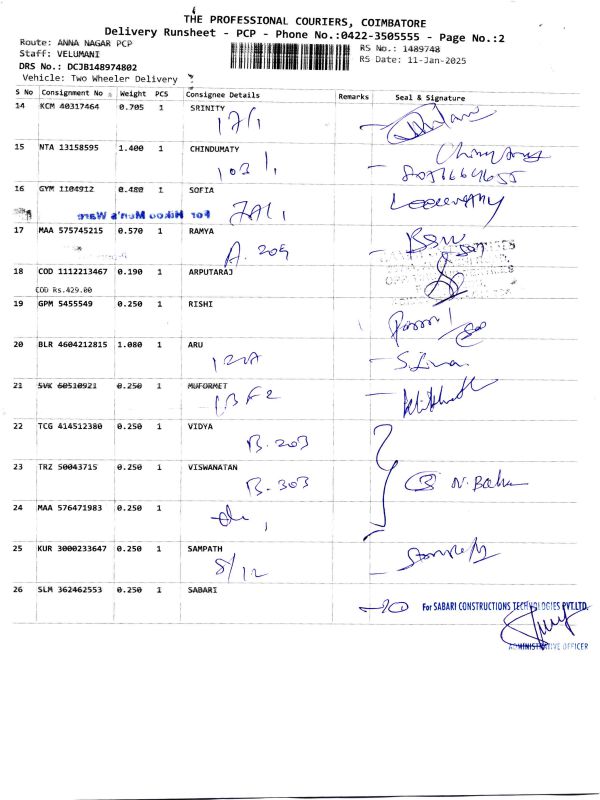 THE PROFESSIONAL COURIERS, COIMBATORE
Delivery Runsheet - PCP - Phone No.:0422-3505555 - Page No.:2
Route: ANNA NAGAR PCP
Staff: VELUMANI
DRS No.: DCJB148974802
Vehicle: Two Wheeler Delivery
RS No.: 1489748
RS Date: 11-Jan-2025
S No Consignment No Weight PCS Consignee Details Remarks Seal & Signature
14 KCM 40317464 0.705 1 SRINITY
17/1
15 NTA 13158595 1.400 1 CHINDUMATY
103/1
8056664655
16 GYM 1104912 0.480 1 SOFIA
For Hikoo Men's Ware
17 MAA 575745215 0.570 1 RAMYA
A. 209
18 COD 1112213467 0.190 1 ARPUTARAJ
COD Rs.429.00
19 GPM 5455549 0.250 1 RISHI
20 BLR 4604212815 1.080 1 ARU
122A
21 SVK 60510921 0.250 1 MUFORMET
1BF2
22 TCG 414512380 0.250 1 VIDYA
B. 203
23 TRZ 50043715 0.250 1 VISWANATAN
B. 303
3 N. Babu
24 MAA 576471983 0.250 1
25 KUR 3000233647 0.250 1 SAMPATH
8/12
26 SLM 362462553 0.250 1 SABARI
For SABARI CONSTRUCTIONS TECHNOLOGIES PVT.LTD.
ADMINISTRATIVE OFFICER